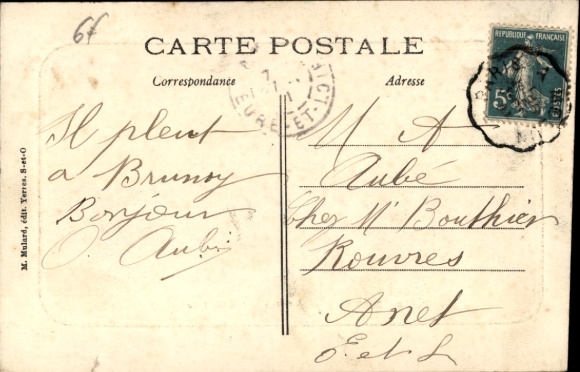 6f
CARTE POSTALE
Correspondance
Adresse
RÉPUBLIQUE FRANÇAISE
5c
POSTES
EURE-ET-LOIR
Il pleut
à Brunoy
Bonjour
O. Aubé
M A
Aubé
Chez Mr Bouthier
Rouvres
Anet
E et L
M. Mulard, édit. Yerres. S-et-O